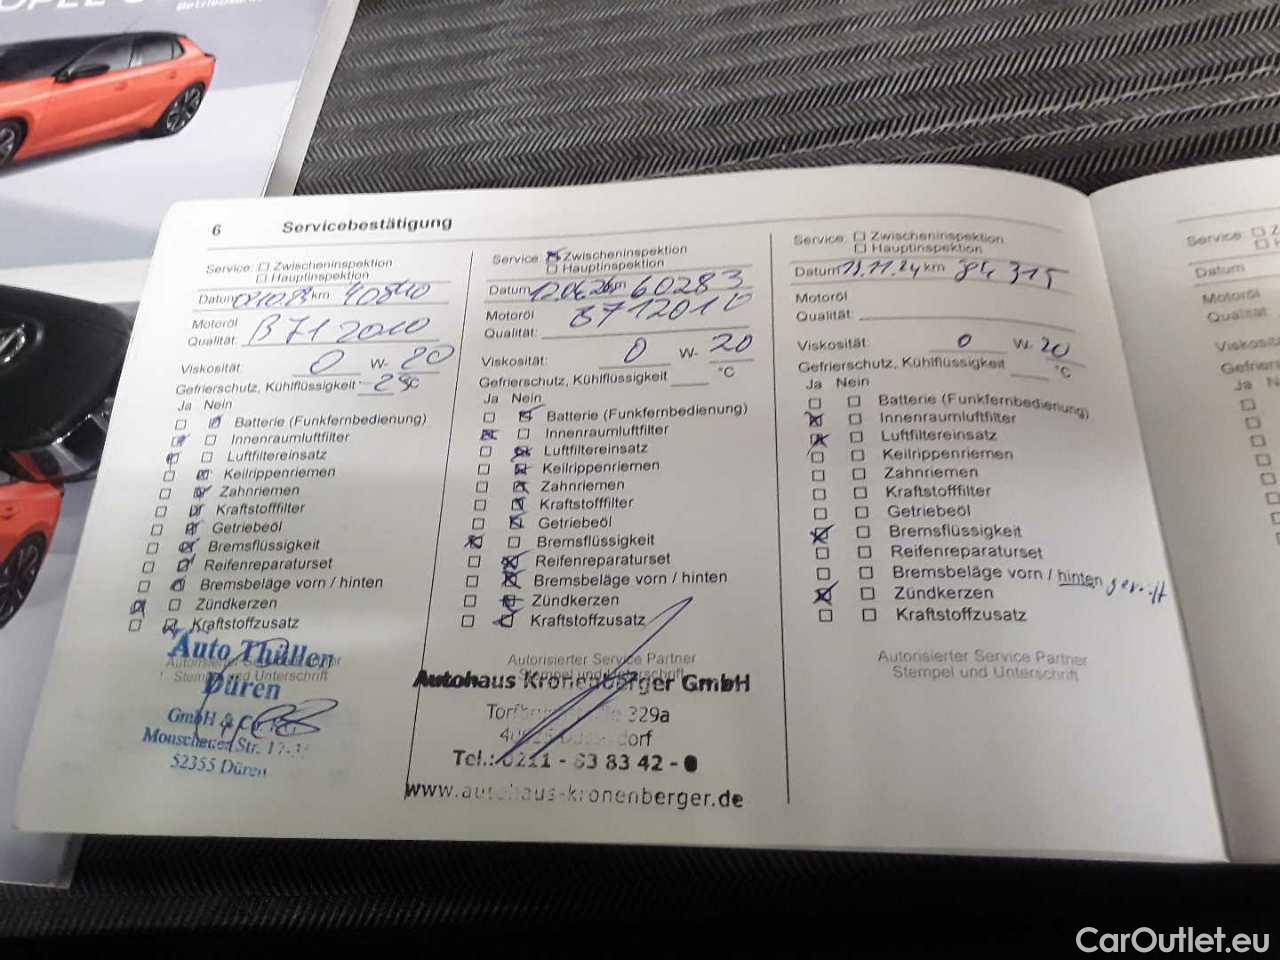 6 Servicebestätigung
Service: Zwischeninspektion
Hauptinspektion
Datum km 40840
Motoröl
Qualität: B71 2010
Viskosität: 0 W- 20
Gefrierschutz, Kühlflüssigkeit °C
Ja Nein
Batterie (Funkfernbedienung)
Innenraumluftfilter
Luftfiltereinsatz
Keilrippenriemen
Zahnriemen
Kraftstofffilter
Getriebeöl
Bremsflüssigkeit
Reifenreparaturset
Bremsbeläge vorn / hinten
Zündkerzen
Kraftstoffzusatz
Autorisierter Service Partner
Stempel und Unterschrift
Auto Thüllen
Düren
GmbH & Co.
Monschauer Str.
52355 Düren
Service: Zwischeninspektion
Hauptinspektion
Datum km 60283
Motoröl
Qualität: B712010
Viskosität: 0 W- 20
Gefrierschutz, Kühlflüssigkeit °C
Ja Nein
Batterie (Funkfernbedienung)
Innenraumluftfilter
Luftfiltereinsatz
Keilrippenriemen
Zahnriemen
Kraftstofffilter
Getriebeöl
Bremsflüssigkeit
Reifenreparaturset
Bremsbeläge vorn / hinten
Zündkerzen
Kraftstoffzusatz
Autorisierter Service Partner
Stempel und Unterschrift
Autohaus Kronenberger GmbH
329a
Tel.: 0211 - 83 83 42 - 0
www.autohaus-kronenberger.de
Service: Zwischeninspektion
Hauptinspektion
Datum 13.11.24 km 84315
Motoröl
Qualität:
Viskosität: 0 W- 20
Gefrierschutz, Kühlflüssigkeit °C
Ja Nein
Batterie (Funkfernbedienung)
Innenraumluftfilter
Luftfiltereinsatz
Keilrippenriemen
Zahnriemen
Kraftstofffilter
Getriebeöl
Bremsflüssigkeit
Reifenreparaturset
Bremsbeläge vorn / hinten
Zündkerzen
Kraftstoffzusatz
Autorisierter Service Partner
Stempel und Unterschrift
Service:
Datum
Motoröl
Qualität:
Ja Nein
CarOutlet.eu